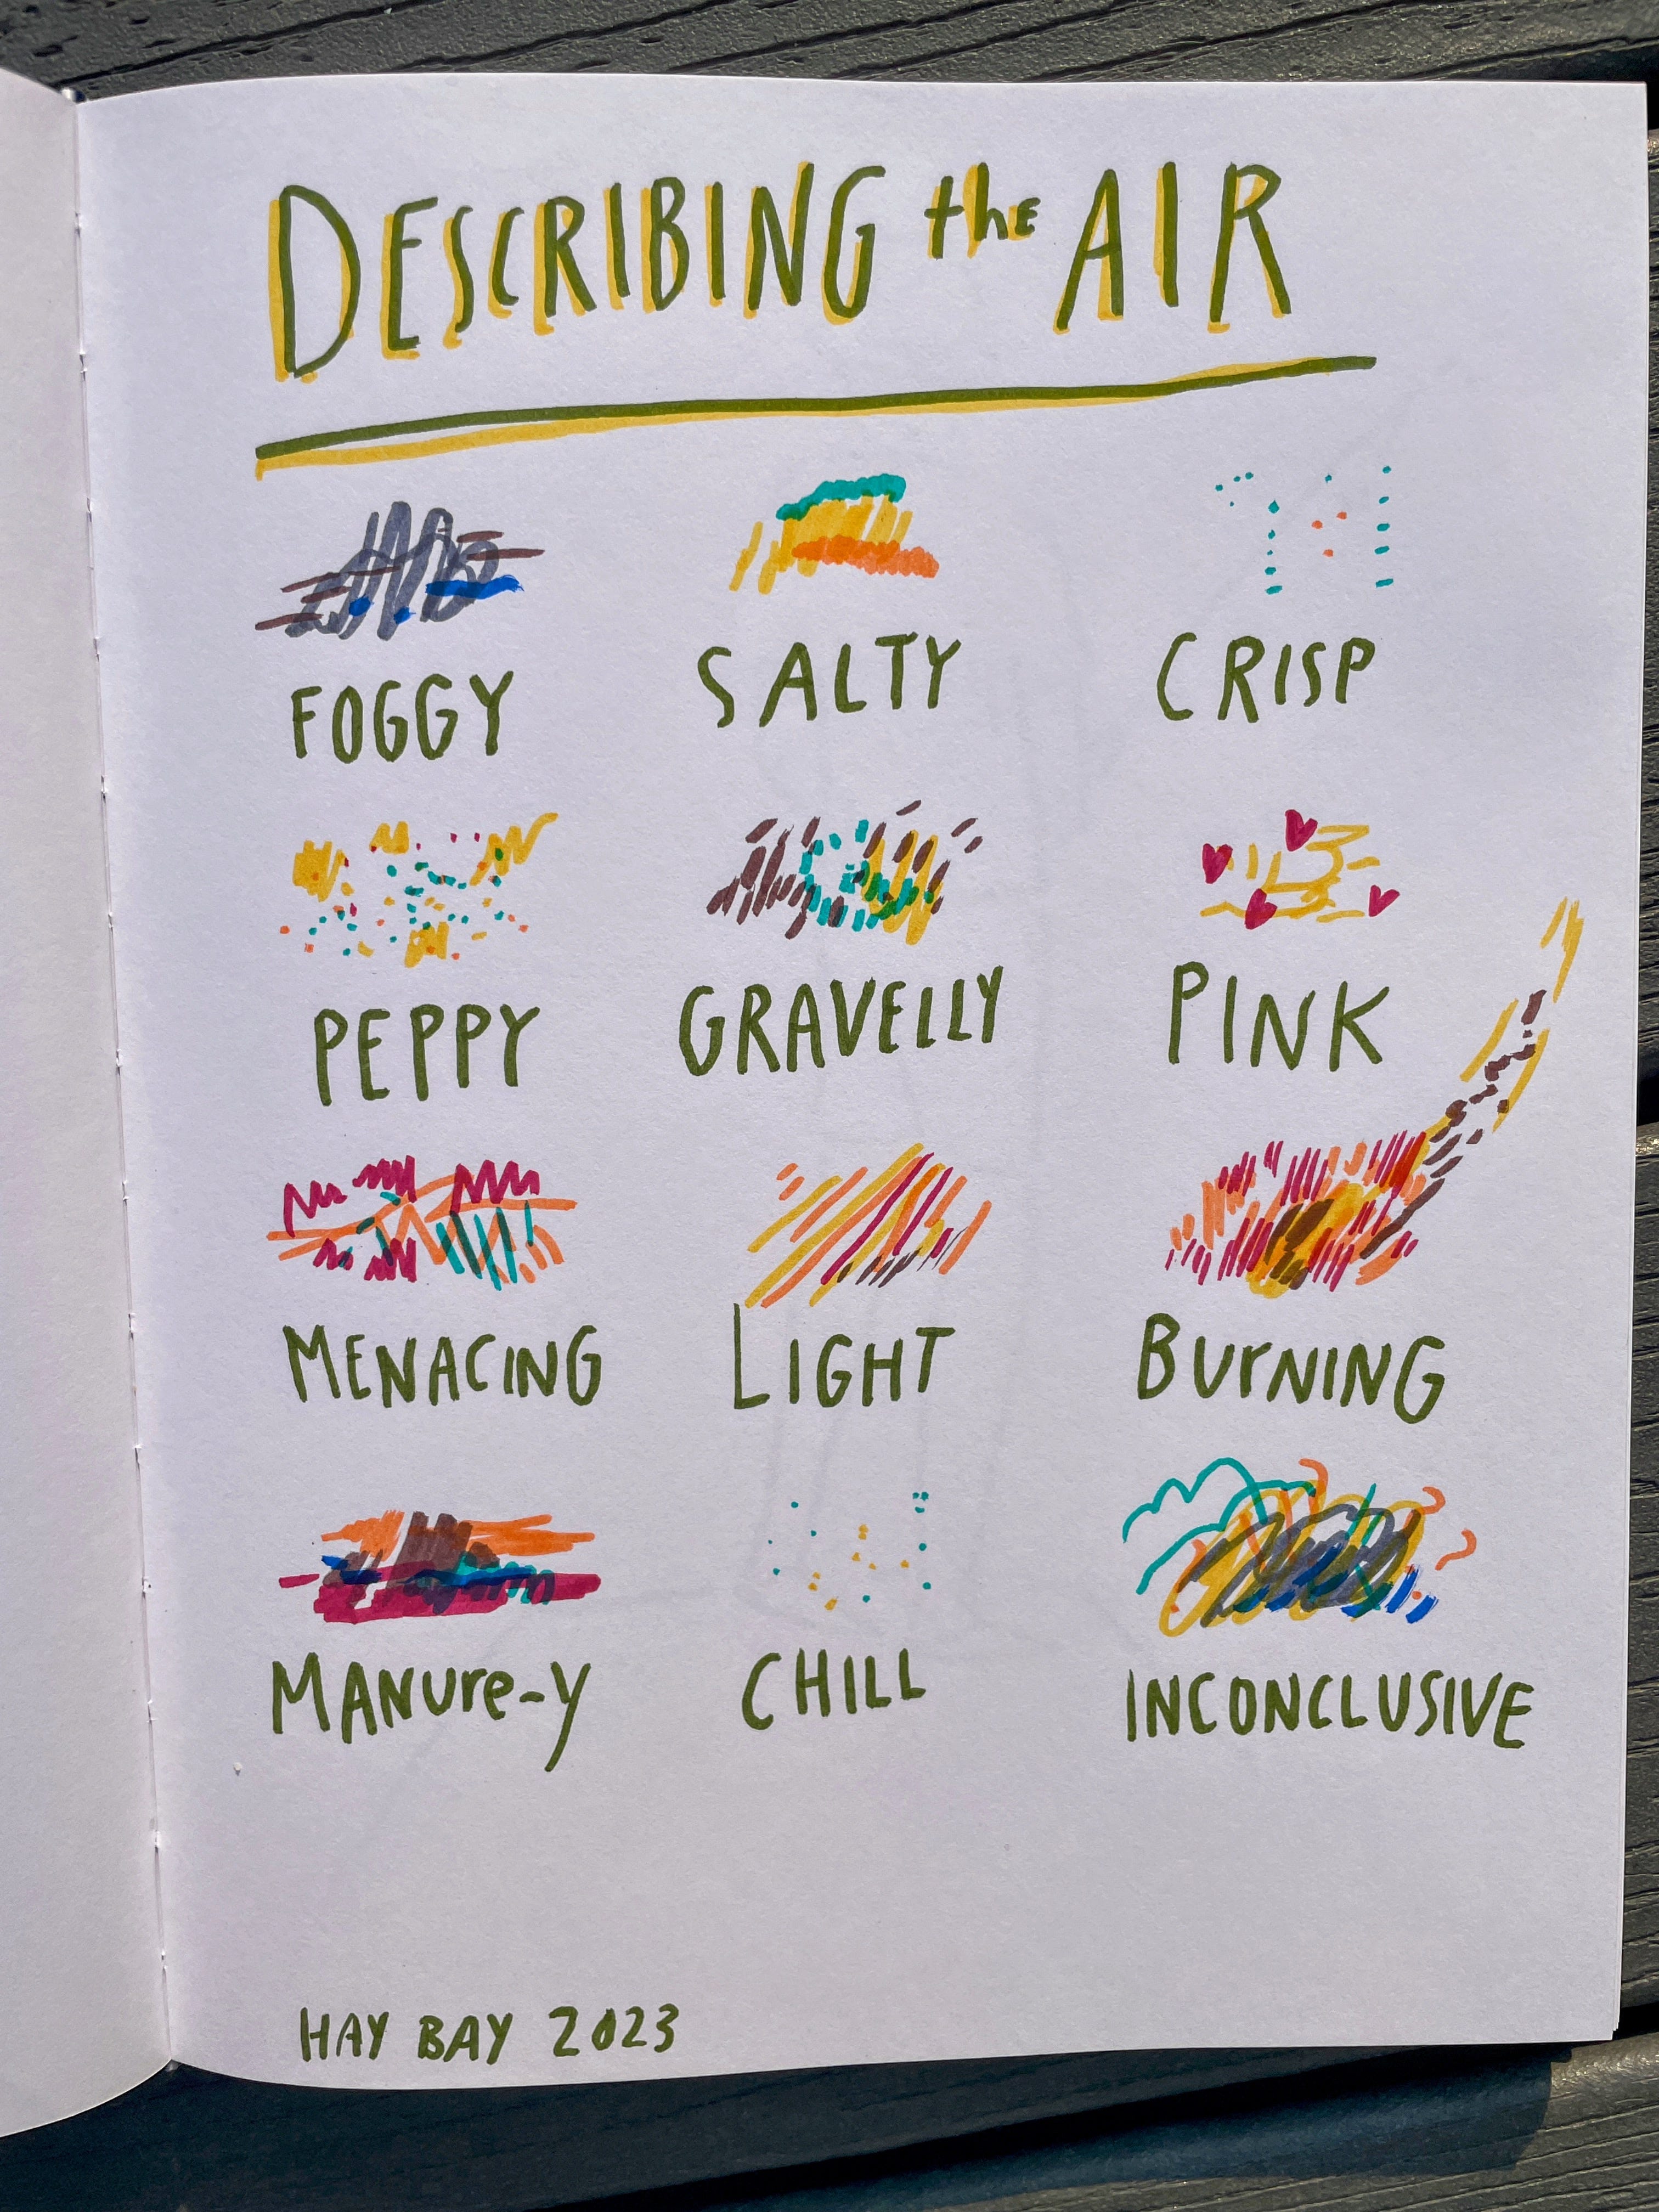 DESCRIBING the AIR
FOGGY SALTY CRISP
PEPPY GRAVELLY PINK
MENACING LIGHT BUrNING
MANUre-y CHILL INCONCLUSIVE
HAY BAY 2023